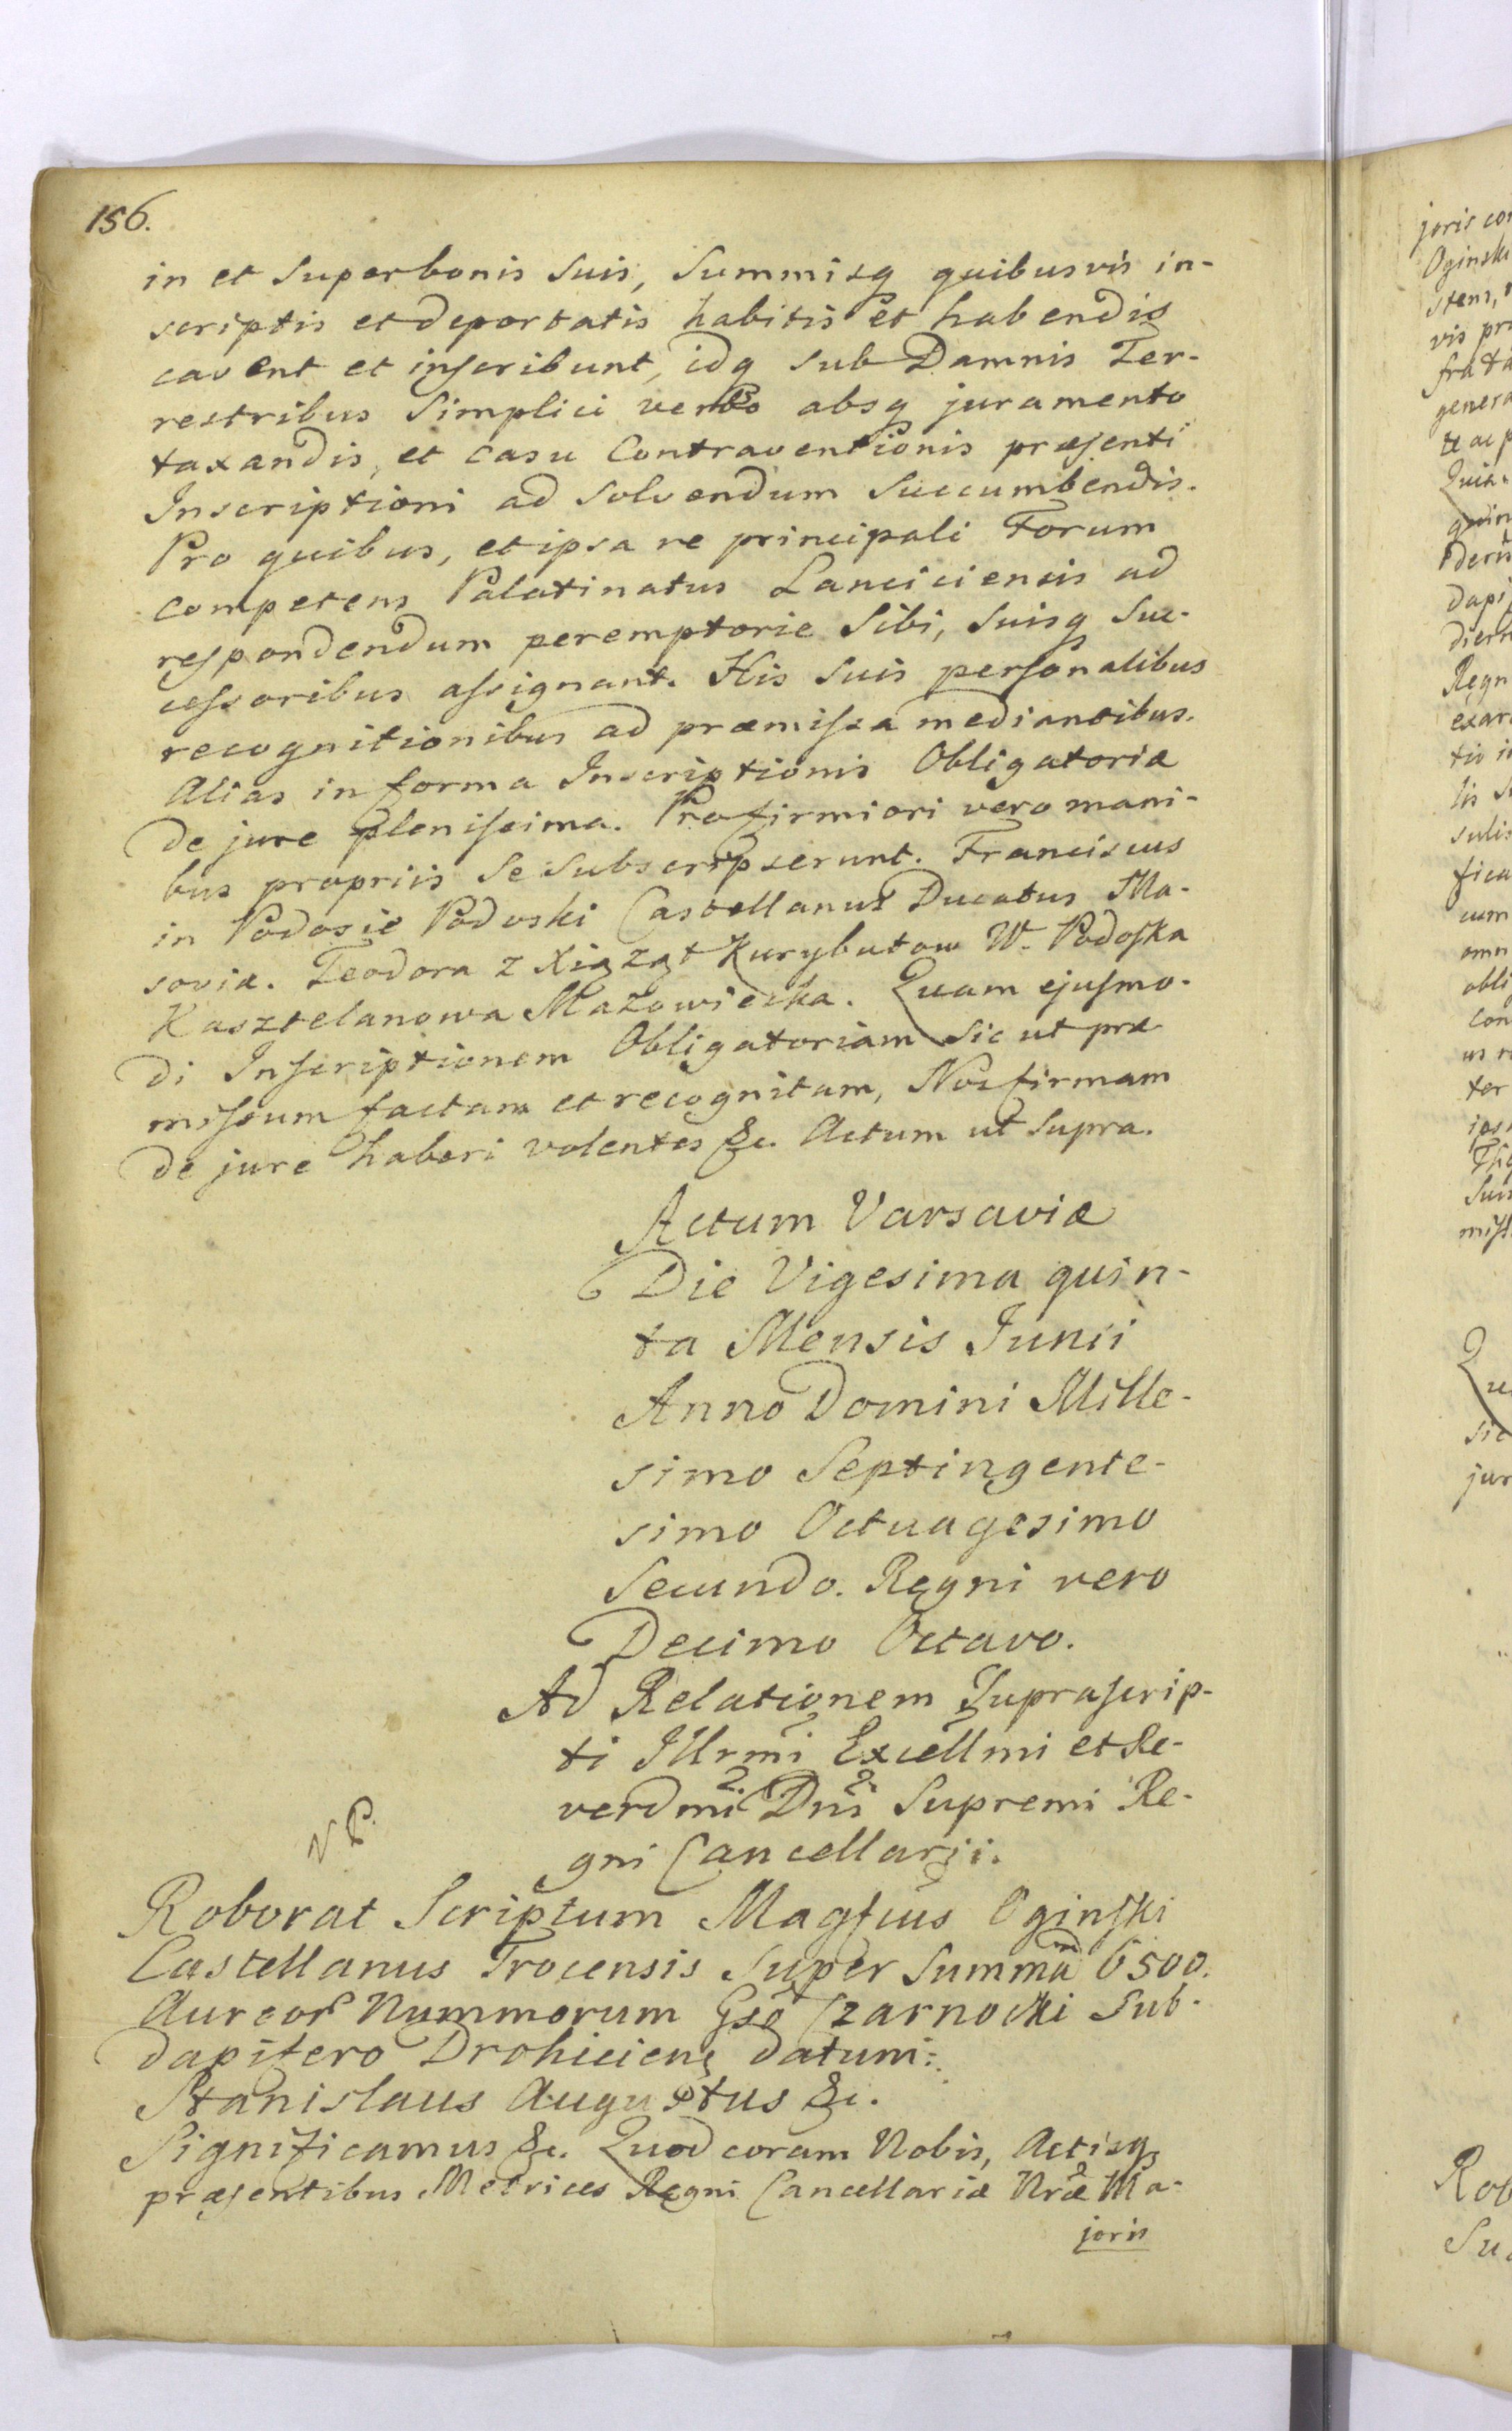 156.
in et Super bonis Suis, Summisq quibusvis in-
scriptis et deportatis habitis et habendis
cavent et inscribunt, idq sub Damnis Ter-
restribus Simplici verbo absq juramento
taxandis, et casu Contraventionis præsenti
Inscriptioni ad Solvendum Succumbendis.
Pro quibus, et ipsa re principali Forum
competens Palatinatus Lanciciensis ad
respondendum peremptorie Sibi, Suisq Suc-
cessoribus assignant. His Suis personalibus
recognitionibus ad præmissa mediantibus.
Alias in forma Inscriptionis Obligatoriæ
de jure plenissima. Pro firmiori vero mani-
bus propriis Se Subscripserunt. Franciscus
in Podosie Podoski Castellanus Ducatus Ma-
soviæ. Teodora z Xiąząt Kurybutow W. Podoska
Kasztelanowa Mazowiecka. Quam ejusmo-
di Inscriptionem Obligatoriam Sic ut præ
missum factam et recognitam, Nos firmam
de jure haberi volentes &c. Actum ut Supra.
Actum Varsaviæ
Die Vigesima quin-
ta Mensis Junii
Anno Domini Mille-
simo Septingente-
simo Octuagesimo
Secundo. Regni vero
Decimo Octavo.
Ad Relationem Suprascrip-
ti Illrmi Excellmi et Re-
verdmi Dni Supremi Re-
gni Cancellarii.
Roborat Scriptum Magfcus Oginski
Castellanus Trocensis Super Summa 6500.
Aureor Nummorum Gso Czarnocki Sub-
dapifero Drohiciens datum.
Stanislaus Augustus &c.
Significamus &c. Quod coram Nobis, Actisq
præsentibus Metrices Regni Cancellariæ Nræ Ma-
joris
joris
Oginski
stens,
vis
gener
Regn
sulis
fica
cum
obli
ter
jur